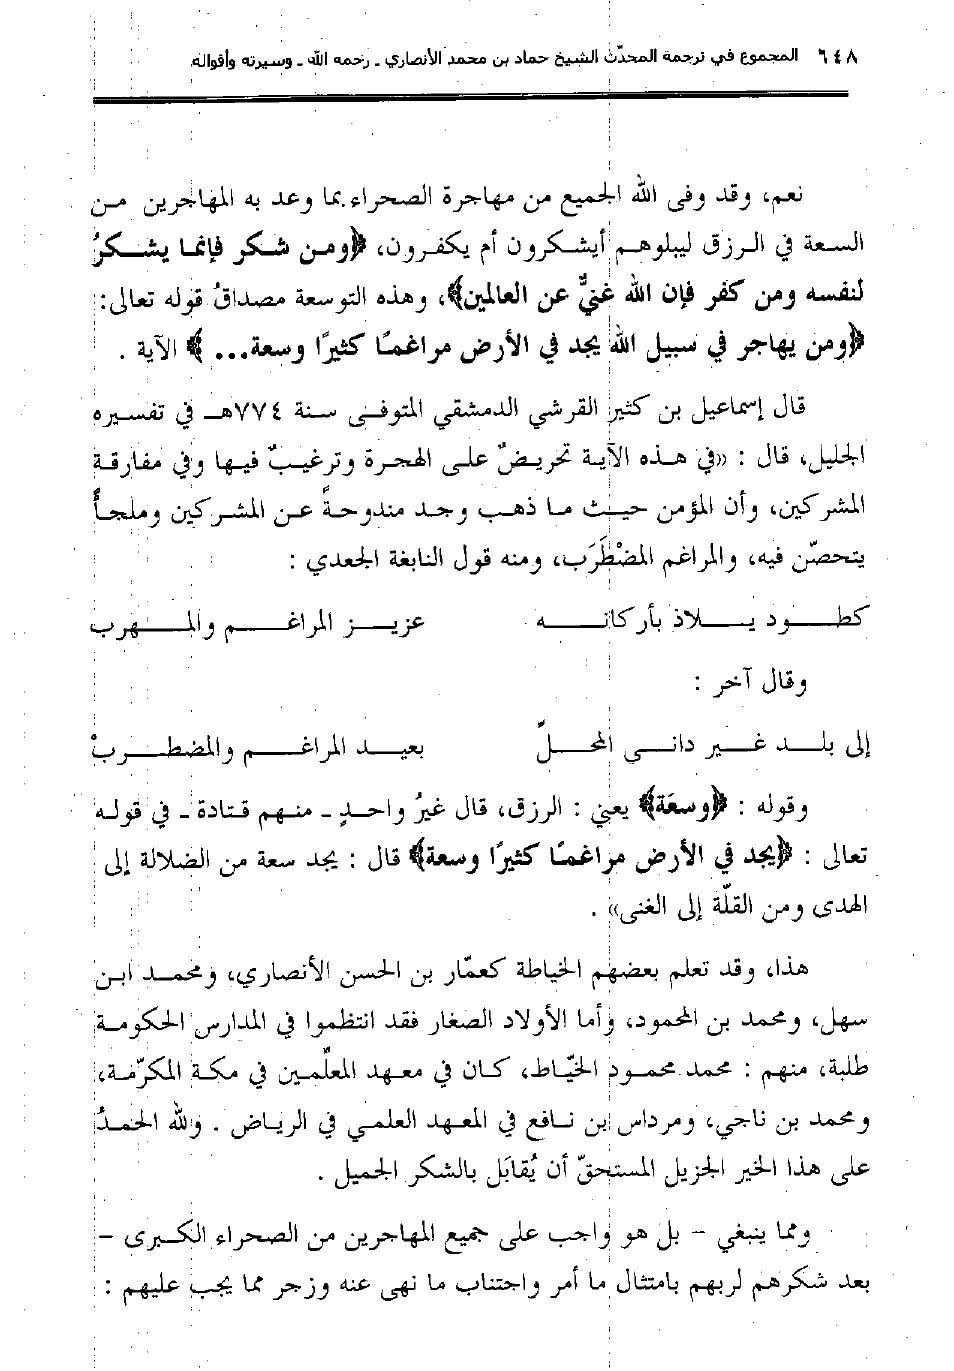 ٦٤٨ المجموع في ترجمة المحدّث الشيخ حماد بن محمد الأنصاري ـ رحمه الله ـ وسيرته وأقواله
نعم، وقد وفى الله الجميع من مهاجرة الصحراء بما وعد به المهاجرين من
السعة في الرزق ليبلوهم أيشكرون أم يكفرون، ﴿ومن شكر فإنما يشكرُ
لنفسه ومن كفر فإن الله غنيٌّ عن العالمين﴾، وهذه التوسعة مصداقُ قوله تعالى:
﴿ومن يهاجر في سبيل الله يجد في الأرض مراغمًا كثيرًا وسعة...﴾ الآية .
قال إسماعيل بن كثير القرشي الدمشقي المتوفى سنة ٧٧٤هـ في تفسيره
الجليل، قال : «في هذه الآية تحريضٌ على الهجرة وترغيبٌ فيها وفي مفارقة
المشركين، وأن المؤمن حيث ما ذهب وجد مندوحةً عن المشركين وملجأً
يتحصّن فيه، والمراغم المضْطَرَب، ومنه قول النابغة الجعدي :
كطود يلاذ بأركانه عزيز المراغم والمهرب
وقال آخر :
إلى بلد غير دانى المحلّ بعيد المراغم والمضطربْ
وقوله : ﴿وسعَة﴾ يعني : الرزق، قال غيرُ واحدٍ ـ منهم قتادة ـ في قوله
تعالى : ﴿يجد في الأرض مراغمًا كثيرًا وسعة﴾ قال : يجد سعة من الضلالة إلى
الهدى ومن القلّة إلى الغنى» .
هذا، وقد تعلم بعضهم الخياطة كعمّار بن الحسن الأنصاري، ومحمد ابن
سهل، ومحمد بن المحمود، وأما الأولاد الصغار فقد انتظموا في المدارس الحكومة
طلبة، منهم : محمد محمود الخيّاط، كان في معهد المعلّمين في مكة المكرّمة،
ومحمد بن ناجي، ومرداس ابن نافع في المعهد العلمي في الرياض . ولله الحمدُ
على هذا الخير الجزيل المستحقّ أن يُقابَل بالشكر الجميل .
ومما ينبغي – بل هو واجب على جميع المهاجرين من الصحراء الكبرى –
بعد شكرهم لربهم بامتثال ما أمر واجتناب ما نهى عنه وزجر مما يجب عليهم :